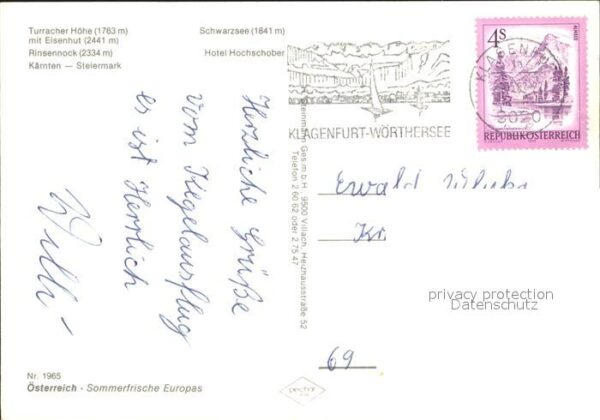 Turracher Höhe (1763 m)
mit Eisenhut (2441 m)
Rinsennock (2334 m)
Kärnten — Steiermark
Schwarzsee (1841 m)
Hotel Hochschober
KLAGENFURT-WÖRTHERSEE
KLAGENFURT
9020
4S
REPUBLIK ÖSTERREICH
Herzliche Grüße
vom Kegelausflug
es ist Herrlich
Willi
Ges.m.b.H. 9500 Villach, Heizhausstraße 52
Telefon 2 60 62 oder 2 75 47
Ewald
Kr.
69
privacy protection
Datenschutz
Nr. 1965
Österreich - Sommerfrische Europas